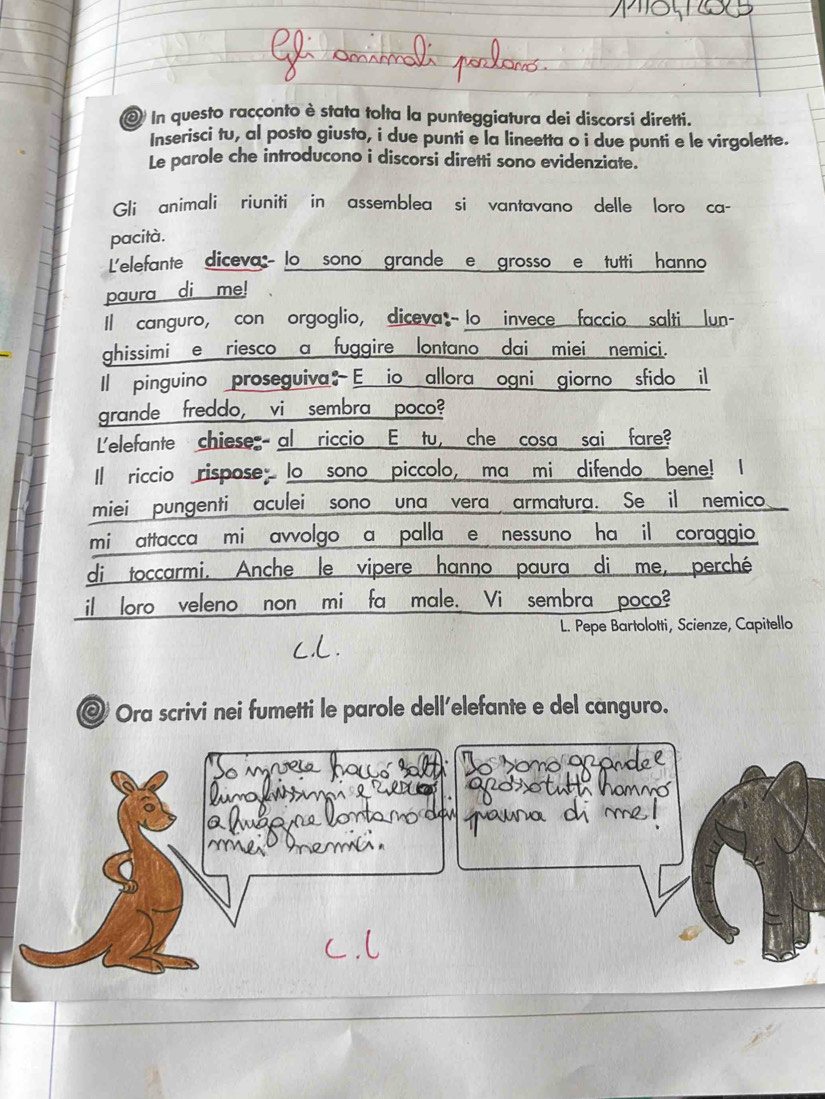 Gli animali parlano.
In questo racconto è stata tolta la punteggiatura dei discorsi diretti.
Inserisci tu, al posto giusto, i due punti e la lineetta o i due punti e le virgolette.
Le parole che introducono i discorsi diretti sono evidenziate.
Gli animali riuniti in assemblea si vantavano delle loro ca-
pacità.
L'elefante diceva:- Io sono grande e grosso e tutti hanno
paura di me!
Il canguro, con orgoglio, diceva:- Io invece faccio salti lun-
ghissimi e riesco a fuggire lontano dai miei nemici.
Il pinguino proseguiva:- E io allora ogni giorno sfido il
grande freddo, vi sembra poco?
L'elefante chiese:- al riccio E tu, che cosa sai fare?
Il riccio rispose:- Io sono piccolo, ma mi difendo bene! I
miei pungenti aculei sono una vera armatura. Se il nemico
mi attacca mi avvolgo a palla e nessuno ha il coraggio
di toccarmi. Anche le vipere hanno paura di me, perché
il loro veleno non mi fa male. Vi sembra poco?
L. Pepe Bartolotti, Scienze, Capitello
C.L.
Ora scrivi nei fumetti le parole dell'elefante e del canguro.
Io invece faccio salti
lunghissimi e riesco
a fuggire lontano dai
miei nemici.
Io sono grande e
grosso tutti hanno
paura di me!
C.L